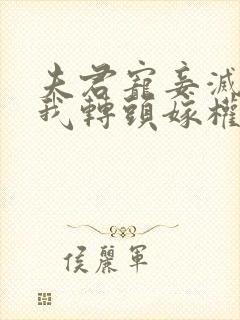 夫君寵妾滅
我轉頭嫁權
侯麗軍